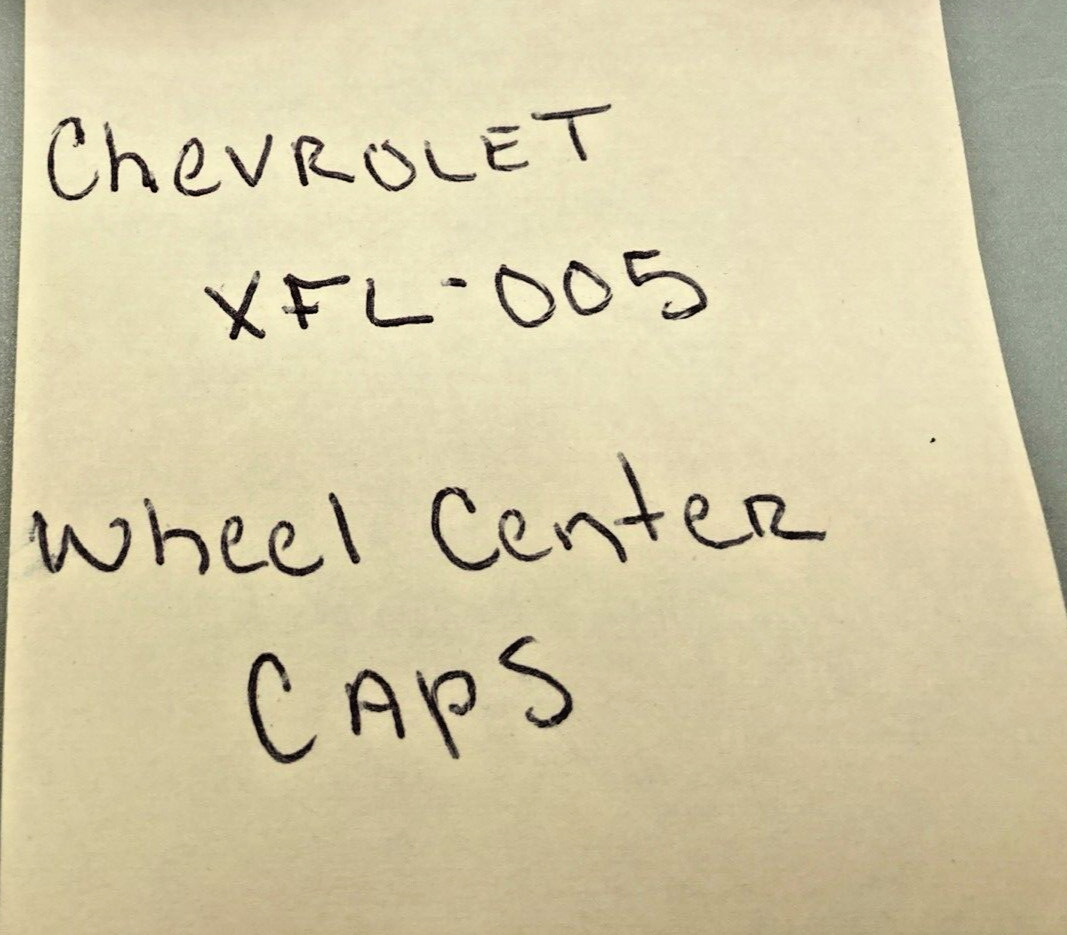 CheVROLET
XFL-005
Wheel CenteR
CAPS